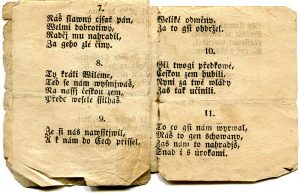 7.
Náš slawný cýsař pán,
Welmi dobrotiwý,
Raděj mu nahradil,
Za geho zlé činy.
8.
Ty králi Wiléme,
Teď se nám wysmjwáš,
Na nassj českau zem,
Předc wesele ssilháš.
9.
Že si nás nawsstjwil,
A k nám do Čech přissel,
Weliké odměny,
Za to gsi obdržel.
10.
Gli twogi předkowé,
Českou zem hubili,
Nyní za twé wlády
Zas tak učinili.
11.
To co gsi nám wyrwal,
Náš to gen schowaný,
Zas nám to nahradjš,
Snad i s úrokami.